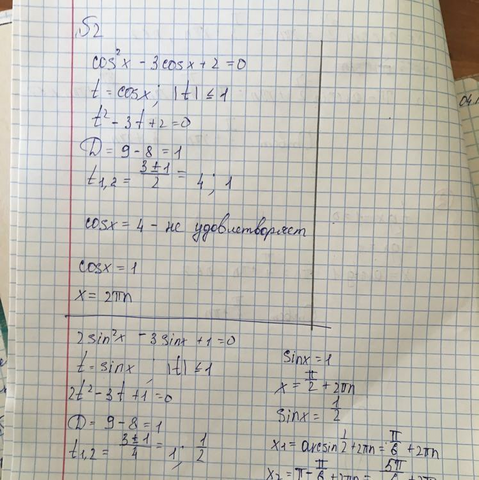 №2
cos²x - 3cosx + 2 = 0
t = cosx; |t| ≤ 1
t² - 3t + 2 = 0
D = 9 - 8 = 1
t₁,₂ = (3±1)/2 = 4; 1
cosx = 4 - не удовлетворяет
cosx = 1
x = 2πn
2sin²x - 3sinx + 1 = 0
t = sinx, |t| ≤ 1
2t² - 3t + 1 = 0
D = 9 - 8 = 1
t₁,₂ = (3±1)/4 = 1; 1/2
sinx = 1
x = π/2 + 2πn
sinx = 1/2
x₁ = arcsin 1/2 + 2πn = π/6 + 2πn
x₂ = π - π/6 + 2πn = 5π/6 + 2πn
04.